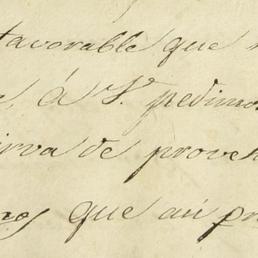 favorable que
á S.r pedimos
sirva de prove
que aún pr